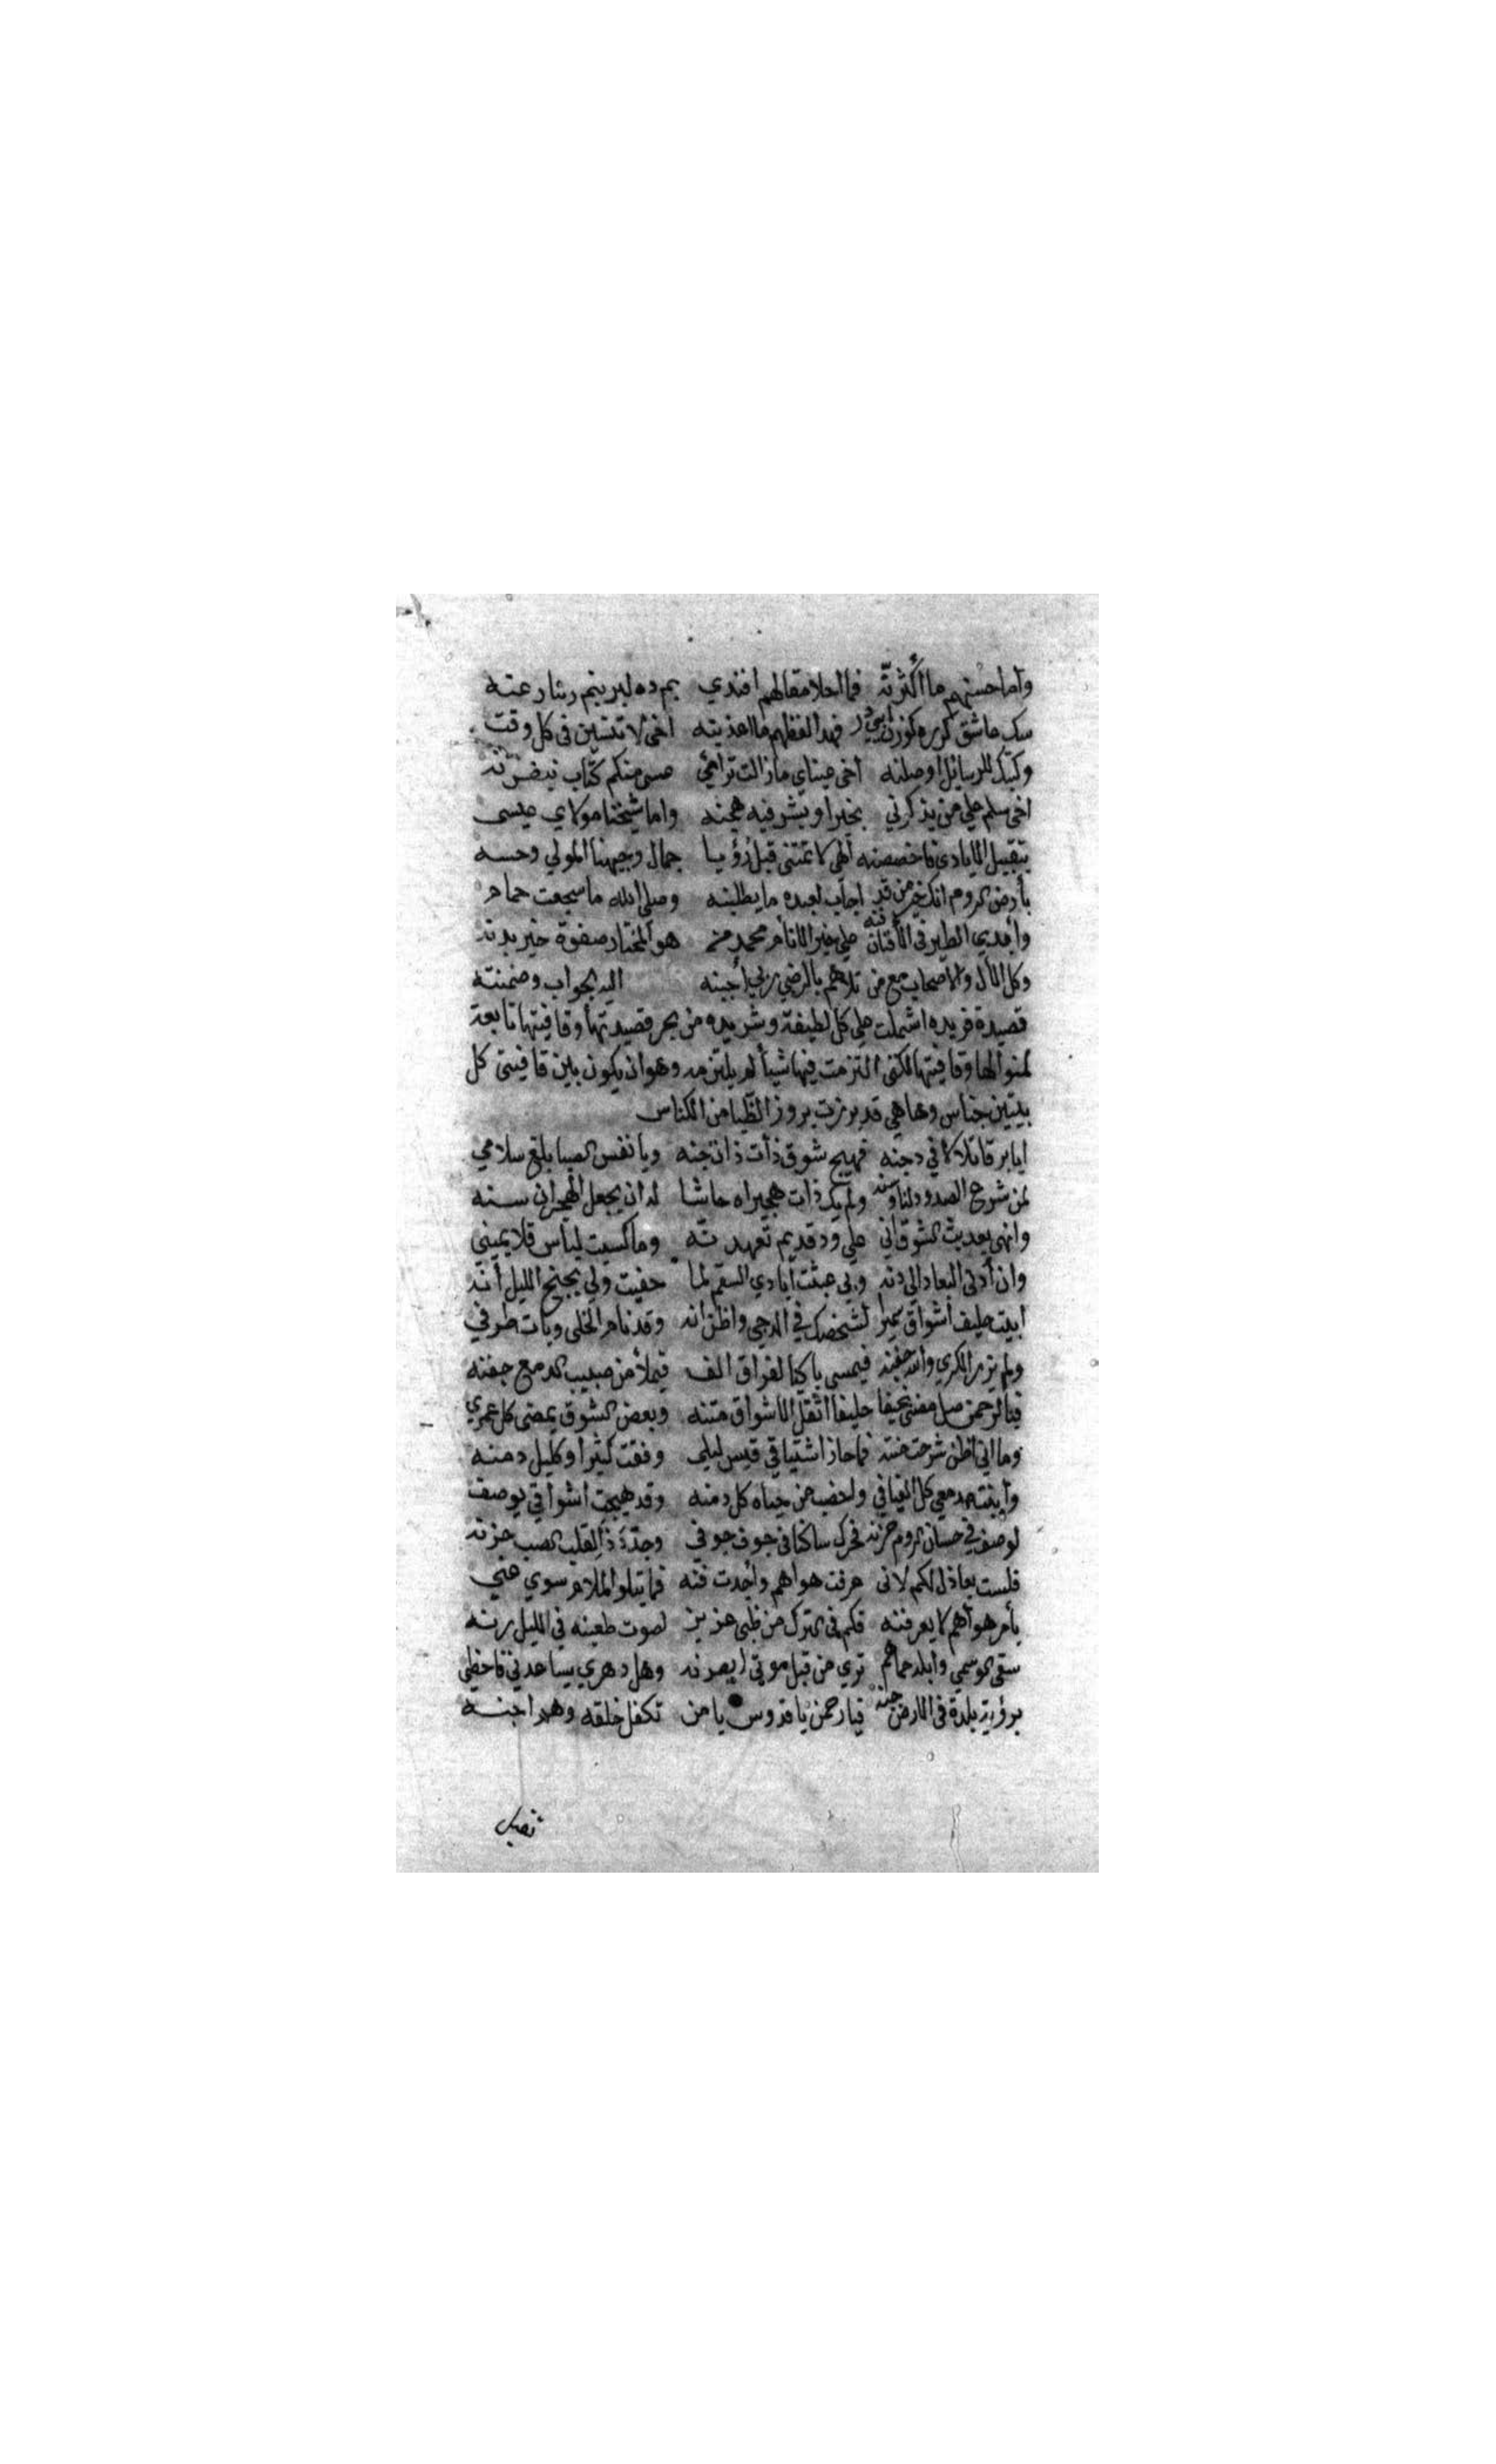 وأما حسنهم ما أكثرنه فما احلا مقالهم افندي بم ده لبر بنم رعته
سك عاشق كوزل فهد الفظهم ما اعذبنه اخي لا تنسين في كل وقت
وكتبك للرسائل اوصلنه أخي عيناي ما زالت تراعي عسى منكم كتاب
اخي سلم علي من يذكرني بخيرا ويشرفيه هجنه واما شيخنا مولاي عيسى
بتقبيل الايادي فاخصصنه آلهي لا تمتني قبل رؤيا جمال وجيهنا المولي وحسنه
بأرض الروم انك خير من قد اجاب لعبده ما يطلبنه وصلي الله ما سجعت حمام
وأبدي الطير في الأفنان فنه علي خير الانام محمد من هو المختار صفوة خير بدنه
وكل الأل والاصحاب مع من تلاهم بالرضي ربي أجبنه اليه الجواب وضمنته
قصيدة فريده اشملت علي كل لطيفة وشريده من بحر قصيدتها وقافيتها تابعة
لمنوالها وقافيتها لكني التزمت فيها شيأ لم يلتزمه وهو ان يكون بين قافيتي كل
بيتين جناس وها هي قد برزت بروز الظبا من الكناس
ايا برقا تلالا في دجنه فهيج شوق ذات ذا نتجنه ويا نفس الصبا بلغ سلامي
لمن شرع الصدود لنا وسنه ولم يك ذات هجيراه حاشا له ان يجعل الهجران سنه
وانهي بعد بث الشوق اني علي ود قديم تعهدنه وما كسبت لباس قلا يميني
وان أدني البعاد الي دنه وبي عبثت أيادي السقم لما خفيت ولي بجنح الليل أنه
ابيت حليف أشواق سميرا لشخصك في الدجي واظن انه وقد نام الخلي وبات طرفي
ولم يزر الكري والله جفنه فيمسي باكيا لفراق الف فيملأ من صبيب الدمع جفنه
فبالرحمن صل مضني نحيفا حليفا اثقل الاشواق متنه وبعض الشوق يمضي كل عمري
وما اني اظن شرحت متنه فما حاز اشتياقي قيس ليلي وفقت كثيرا وكليل دمنه
وأبنت مدمعي كل الفيافي ولخضب من حياه كل دمنه وقد هيجت اشواقي بوصف
لوصف في حسان الروم حزنه فحرك ساكنا في جوف جوفي وجدد ذا لقلب الصب حزنه
فلست بعاذل لكم لاني عرفت هواهم وأجدت فنه فما يتلو الملام سوي غبي
بأمر هواهم لا يعرفنه فكم في الترك من ظبي عزيز لصوت طعينه في الليل رنه
سقي الوسمي وابله حماهم تري من قبل موتي ابصرنه وهل دهري يساعدني فاحظي
برؤية بلدة في الارض جنه فيا رحمن يا قدوس يا من تكفل خلقه وهدا جنه